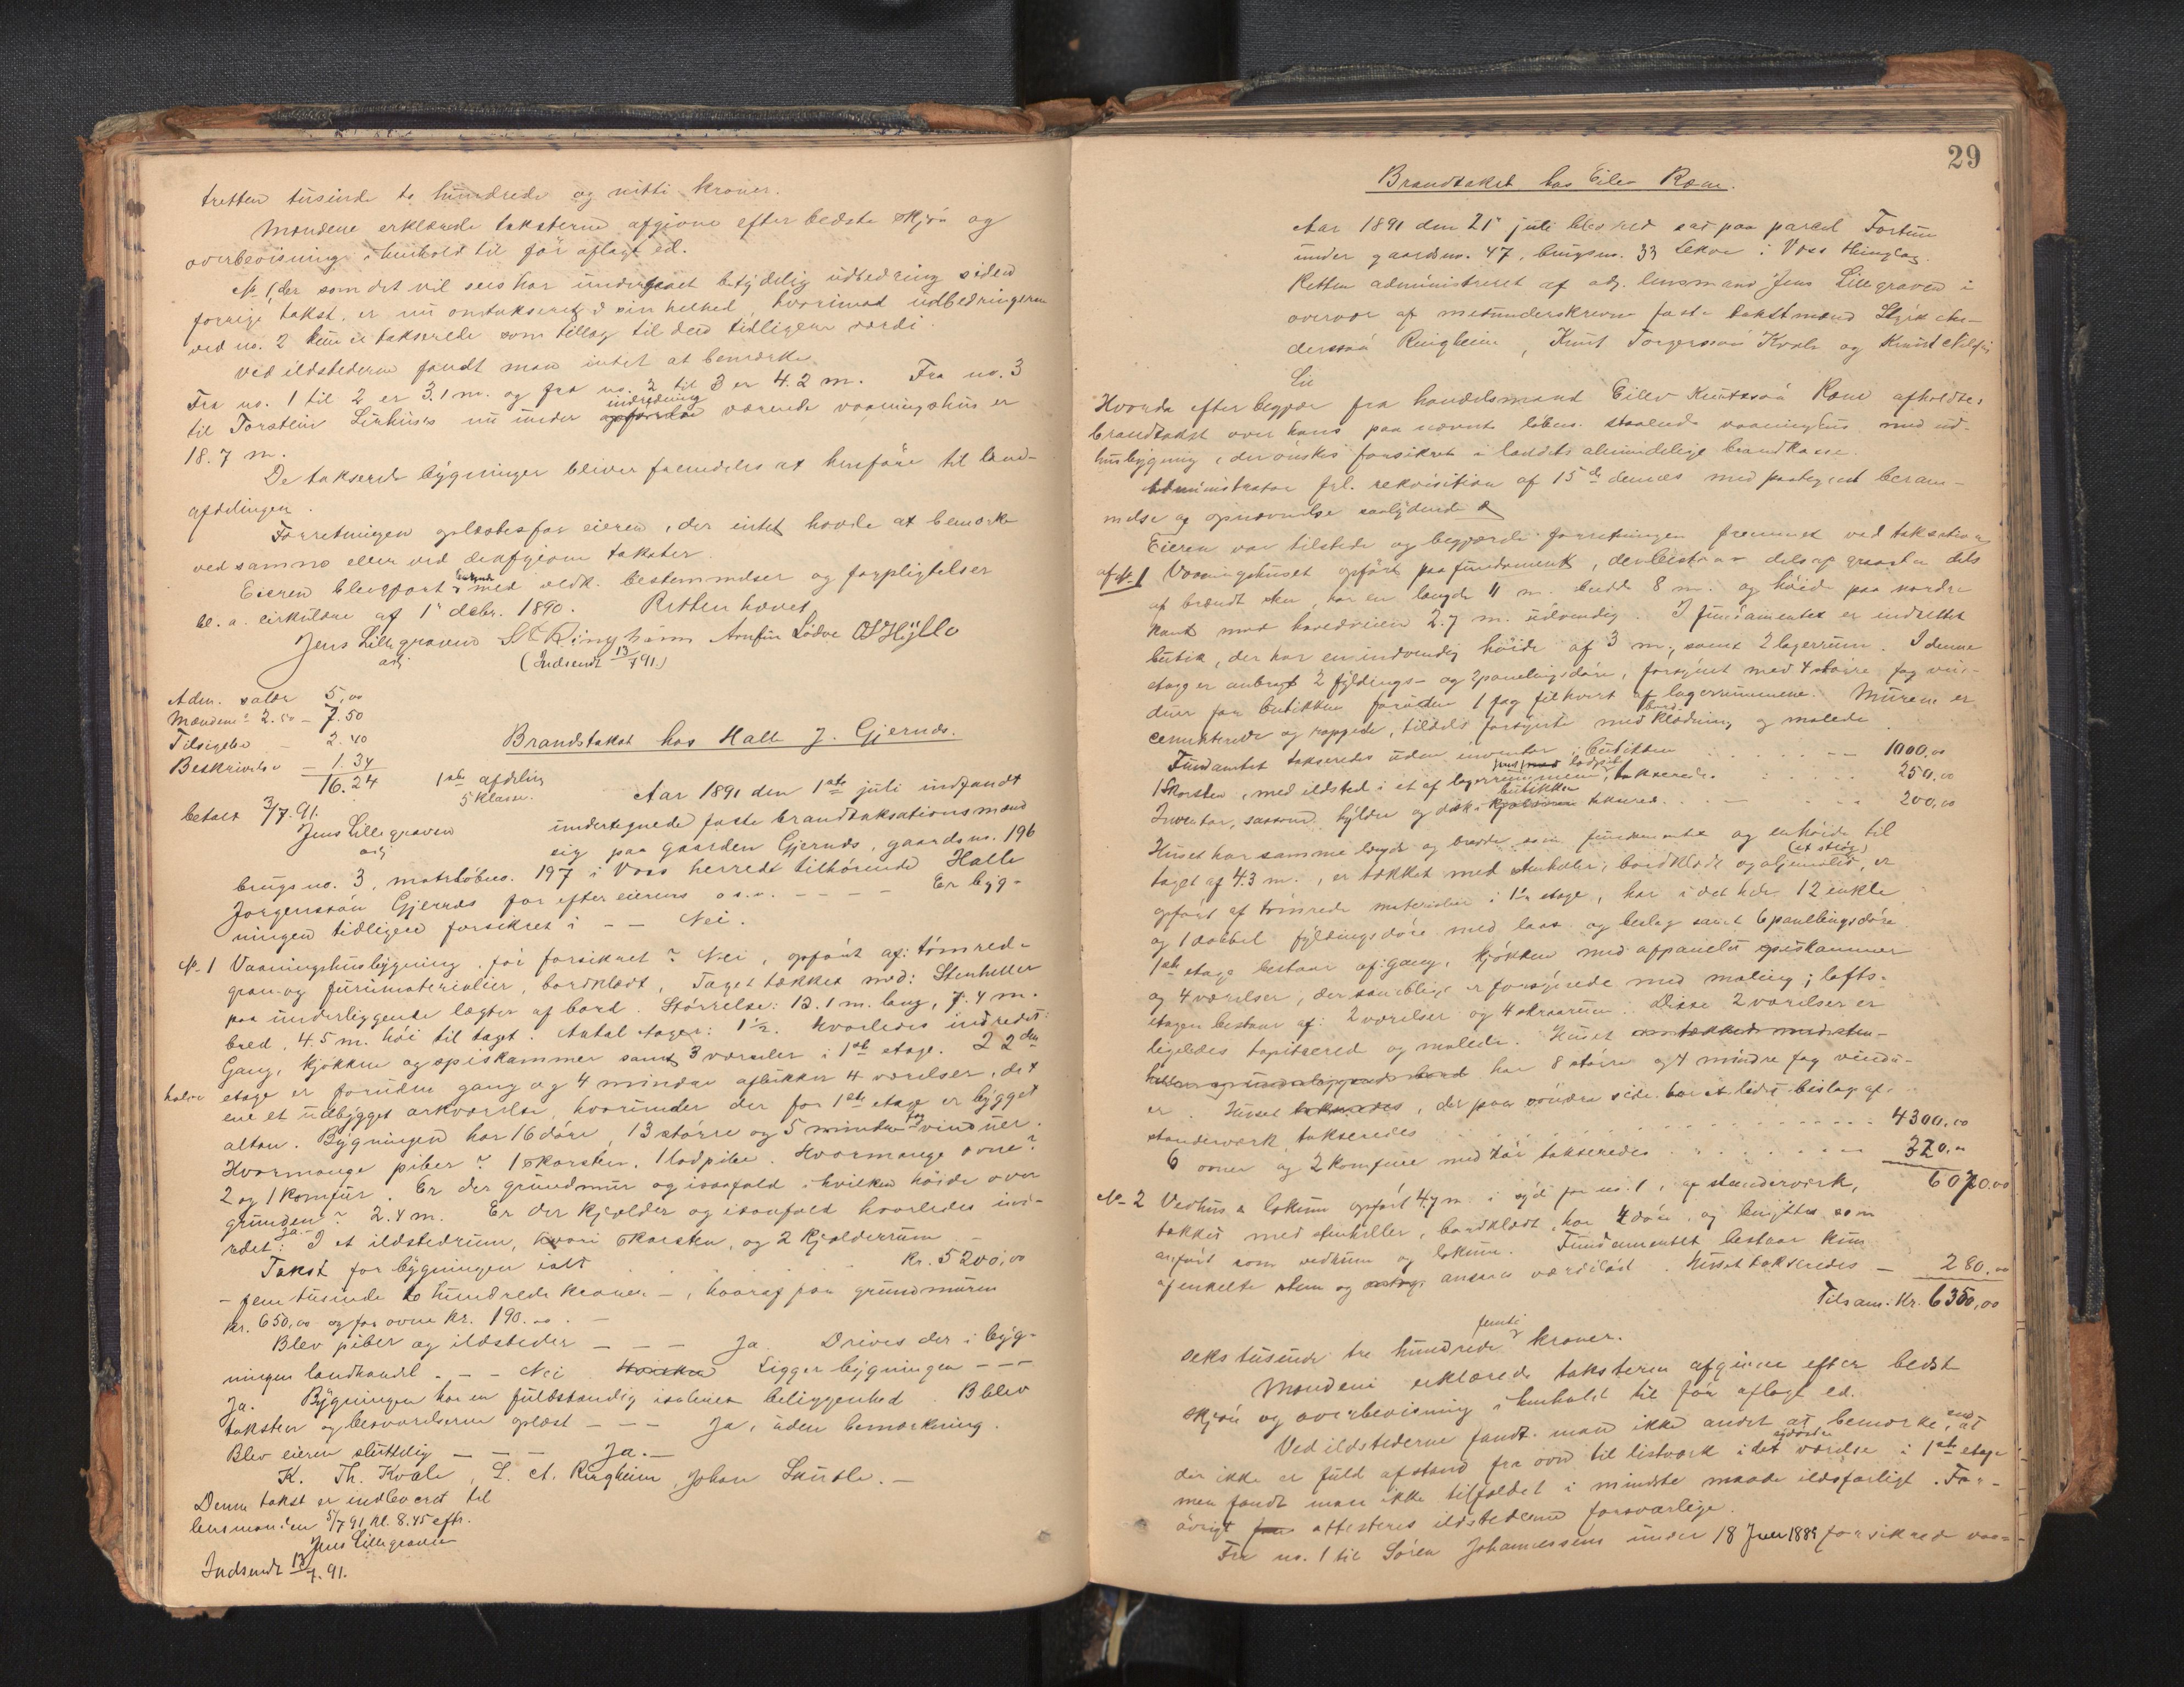 tretten tusinde to hundrede og nitti kroner.
Mændene erklærede taksterne afgivne efter bedste skjøn og
overbevisning i henhold til før aflagt ed.
No 1, der som det vil sees har undergaaet betydelig udbedring siden
forrige takst, er nu omtakseret i sin helhed, hvorimod udbedringerne
ved no. 2 kun er takserede som tillæg til den tidligere værdi.
Ved ildstederne fandt man intet at bemærke.
Fra no. 1 til 2 er 3.1 m. og fra no. 2 til 3 er 4.2 m. Fra no. 3
til Torstein Lirhus's nu under indredning værende vaaningshus er
18.7 m.
De takserede bygninger bliver fremdeles at henføre til land-
afdelingen.
Forretningen oplæstes for eieren, der intet havde at bemærke
ved samme eller ved de afgivne takster.
Eieren blev gjort bekjendt med vedk. bestemmelser og forpligtelser
bl. a. cirkulære af 1ste decbr. 1890. Retten hævet
Jens Lillegraven St Ringheim Arnfin Lødve O S Hyllo
adj (Indsendt 13/7 91.)
Adm. salær 5,00
Mændene 3 à 2.50 – 7.50
Tilsigelse – 2.40
Beskrivelse – 1.34
16.24
betalt 3/7. 91.
Jens Lillegraven
adj
Brandtakst hos Halle J. Gjernæs.
1ste afdeling
5 klasse.
Aar 1891 den 1ste juli indfandt
undertegnede faste brandtaksationsmænd
sig paa gaarden Gjernæs, gaards no. 196
brugs no. 3, matr.løbno. 197 i Voss herred tilhørende Halle
Jørgenssøn Gjernæs for efter eierens o.s.v. – – – – Er byg-
ningen tidligere forsikret i – – Nei.
No 1 Vaaningshusbygning, før forsikret? Nei, opført af: tømred-
gran- og furumaterialier, bordklædt, Taget tækket med: Stenheller
paa underliggende lægter af bord. Størrelse: 12.1 m. lang, 7.4 m.
bred, 4.5 m. høi til taget. Antal etager: 1½. Hvorledes indredet:
Gang, kjøkken og spiskammer samt 3 værelser i 1ste etage. I 2den
halve etage er foruden gang og 4 mindre aflukker 4 værelser, det
ene et udbygget arkværelse, hvorunder der for 1ste etage er bygget
altan. Bygningen har 16 døre, 13 større og 5 mindre fag vinduer.
Hvormange piber? 1 skorsten, 1 lodpibe. Hvormange ovne?
2 og 1 komfur. Er der grundmur og isaafald i hvilken høide over
grunden? 2.4 m. Er der kjelder og isaafald hvorledes ind-
redet: Ja. I et ildstedrum, hvori skorsten, og 2 kjelderrum
Takst for bygningen ialt Kr. 5200,00
– fem tusinde to hundrede kroner –, hvoraf paa grundmuren
kr. 650,00 og for ovne kr. 190.00 –
Blev piber og ildsteder – – – Ja. Drives der i byg-
ningen landhandel – – – Nei. Ligger bygningen – – –
Ja. Bygningen har en fuldstændig isoleret beliggenhed. Blev
taksten og besvarelserne oplæst – – – Ja, uden bemærkning.
Blev eieren sluttelig – – – Ja. –
K. Th. Kvale, S. A. Ringheim, Johan Skutle. –
Denne takst er indleveret til
lensmanden 5/7 91 kl. 8.45 efm.
Jens Lillegraven
Indsendt 13/7. 91.
29
Brandtakst hos Eilev Rene.
Aar 1891 den 21de juli blev ret sat paa parcel Fortun
under gaardsno. 47, brugsno. 33 Lekve i Voss thinglag.
Retten administreret af adj. lensmand Jens Lillegraven i
overvær af medunderskrevne faste takstmænd Styrk An-
derssøn Ringheim, Knut Torgerssøn Kvale og Knut Nilssøn
Lie
Hvorda efter begjær fra handelsmand Eilev Knutssøn Rene afholdtes
brandtakst over hans paa nævnte løbno. staaende vaaningshus med ud-
husbygning, der ønskes forsikret i landets almindelige brandkasse.
Administrator frl. rekvisition af 15de dennes med paategnet beram-
melse og opnævnelse saalydende
Eieren var tilstede og begjærede forretningen fremmet ved taksation
af No 1 Vaaningshuset opført paa fundament, der bestaar dels af graasten dels
af brændt sten, har en længde 11 m. bredde 8 m. og høide paa nordre
kant mod hovedveien 2.7 m. udvendig. I fundamentet er indrettet
butik, der har en indvendig høide af 3 m., samt 2 lagerrum. I denne
etage er anbragt 2 fyldings- og 2 panelingsdøre, forsynet med 4 større fag vin-
duer for butikken foruden 1 fag til hvert af lagerrummene. Murene er
cementerede og rappede, tildels forsynte med bord-klædning og malede
Fundamentet takseredes uden inventar i butikken 1000,00
1 Skorsten, med ildsted i et af lagerrummene, takseredes 250,00
Inventar, saasom hylder og disk i butikken takseret 200,00
Huset har samme længde og bredde som fundamentet og en høide til
taget af 4.3 m., er tækket med stenheller, bordklædt og oljemalet (et strøg), er
opført af tømrede materialier i 1½ etage, har i det hele 12 enkle
og 1 dobbel fyldingsdøre med laas og beslag samt 6 panelingsdøre
1ste etage bestaar af: gang, kjøkken med afpanelet spiskammer
og 4 værelser, der samtlige er forsynede med maling; lofts-
etagen bestaar af: 2 værelser og 4 skraarum. Disse 2 værelser er
ligeledes tapitseret og malede. Huset
har 8 større og 4 mindre fag vindu-
er. Huset, der paa søndre side har et lidet bislag af
standerværk takseredes 4300,00
6 ovne og 2 komfure med rør takseredes 320,00
6070,00
No 2 Vedhus & lokum opført 4.7 m. i syd for no. 1, af standerværk,
tækket med stenheller, bordklædt, har 4 døre, og benyttes som
anført som vedrum og lokum. Fundamentet bestaar kun
af enkelte stene og ansees værdiløst. Huset takseredes – 280.00
Tilsam. Kr. 6350,00
seks tusinde tre hundrede femti kroner.
Mændene erklærede taksterne afgivne efter bedste
skjøn og overbevisning i henhold til før aflagt ed.
Ved ildstederne fandt man ikke andet at bemærke, end at
der ikke er fuld afstand fra ovn til listværk i det værelse i 1ste etage
men fandt man ikke tilfældet i mindste maade ildsfarligt. For-
øvrigt attesteres ildstederne forsvarlige.
Fra no. 1 til Søren Johannessens under 18 Juni 1889 forsikrede vaa-